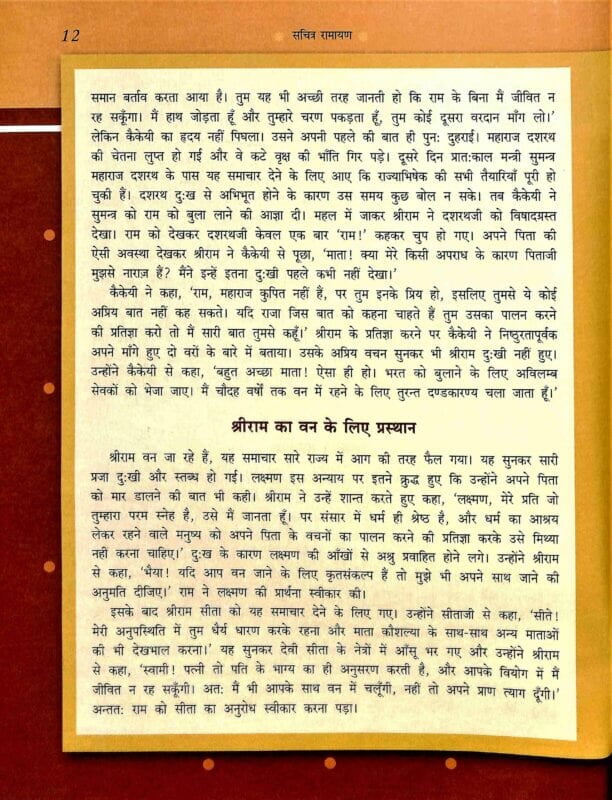 12
सचित्र रामायण
समान बर्ताव करता आया है। तुम यह भी अच्छी तरह जानती हो कि राम के बिना मैं जीवित न
रह सकूँगा। मैं हाथ जोड़ता हूँ और तुम्हारे चरण पकड़ता हूँ, तुम कोई दूसरा वरदान माँग लो।'
लेकिन कैकेयी का हृदय नहीं पिघला। उसने अपनी पहले की बात ही पुनः दुहराई। महाराज दशरथ
की चेतना लुप्त हो गई और वे कटे वृक्ष की भाँति गिर पड़े। दूसरे दिन प्रातःकाल मन्त्री सुमन्त्र
महाराज दशरथ के पास यह समाचार देने के लिए आए कि राज्याभिषेक की सभी तैयारियाँ पूरी हो
चुकी हैं। दशरथ दुःख से अभिभूत होने के कारण उस समय कुछ बोल न सके। तब कैकेयी ने
सुमन्त्र को राम को बुला लाने की आज्ञा दी। महल में जाकर श्रीराम ने दशरथजी को विषादग्रस्त
देखा। राम को देखकर दशरथजी केवल एक बार 'राम!' कहकर चुप हो गए। अपने पिता की
ऐसी अवस्था देखकर श्रीराम ने कैकेयी से पूछा, 'माता! क्या मेरे किसी अपराध के कारण पिताजी
मुझसे नाराज़ हैं? मैंने इन्हें इतना दुःखी पहले कभी नहीं देखा।'
कैकेयी ने कहा, 'राम, महाराज कुपित नहीं हैं, पर तुम इनके प्रिय हो, इसलिए तुमसे ये कोई
अप्रिय बात नहीं कह सकते। यदि राजा जिस बात को कहना चाहते हैं तुम उसका पालन करने
की प्रतिज्ञा करो तो मैं सारी बात तुमसे कहूँ।' श्रीराम के प्रतिज्ञा करने पर कैकेयी ने निष्ठुरतापूर्वक
अपने माँगे हुए दो वरों के बारे में बताया। उसके अप्रिय वचन सुनकर भी श्रीराम दुःखी नहीं हुए।
उन्होंने कैकेयी से कहा, 'बहुत अच्छा माता! ऐसा ही हो। भरत को बुलाने के लिए अविलम्ब
सेवकों को भेजा जाए। मैं चौदह वर्षों तक वन में रहने के लिए तुरन्त दण्डकारण्य चला जाता हूँ।'
श्रीराम का वन के लिए प्रस्थान
श्रीराम वन जा रहे हैं, यह समाचार सारे राज्य में आग की तरह फैल गया। यह सुनकर सारी
प्रजा दुःखी और स्तब्ध हो गई। लक्ष्मण इस अन्याय पर इतने क्रुद्ध हुए कि उन्होंने अपने पिता
को मार डालने की बात भी कही। श्रीराम ने उन्हें शान्त करते हुए कहा, 'लक्ष्मण, मेरे प्रति जो
तुम्हारा परम स्नेह है, उसे मैं जानता हूँ। पर संसार में धर्म ही श्रेष्ठ है, और धर्म का आश्रय
लेकर रहने वाले मनुष्य को अपने पिता के वचनों का पालन करने की प्रतिज्ञा करके उसे मिथ्या
नहीं करना चाहिए।' दुःख के कारण लक्ष्मण की आँखों से अश्रु प्रवाहित होने लगे। उन्होंने श्रीराम
से कहा, 'भैया! यदि आप वन जाने के लिए कृतसंकल्प हैं तो मुझे भी अपने साथ जाने की
अनुमति दीजिए।' राम ने लक्ष्मण की प्रार्थना स्वीकार की।
इसके बाद श्रीराम सीता को यह समाचार देने के लिए गए। उन्होंने सीताजी से कहा, 'सीते!
मेरी अनुपस्थिति में तुम धैर्य धारण करके रहना और माता कौशल्या के साथ-साथ अन्य माताओं
की भी देखभाल करना।' यह सुनकर देवी सीता के नेत्रों में आँसू भर गए और उन्होंने श्रीराम
से कहा, 'स्वामी! पत्नी तो पति के भाग्य का ही अनुसरण करती है, और आपके वियोग में मैं
जीवित न रह सकूँगी। अतः मैं भी आपके साथ वन में चलूँगी, नहीं तो अपने प्राण त्याग दूँगी।'
अन्ततः राम को सीता का अनुरोध स्वीकार करना पड़ा।